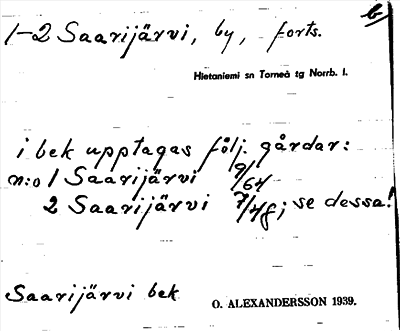 b/
1-2 Saarijärvi, by, forts.
Hietaniemi sn Torneå tg Norrb. l.
i bek upptagas följ. gårdar:
n:o 1 Saarijärvi 9/64
2 Saarijärvi 7/48; se dessa!
Saarijärvi bek
O. ALEXANDERSSON 1939.